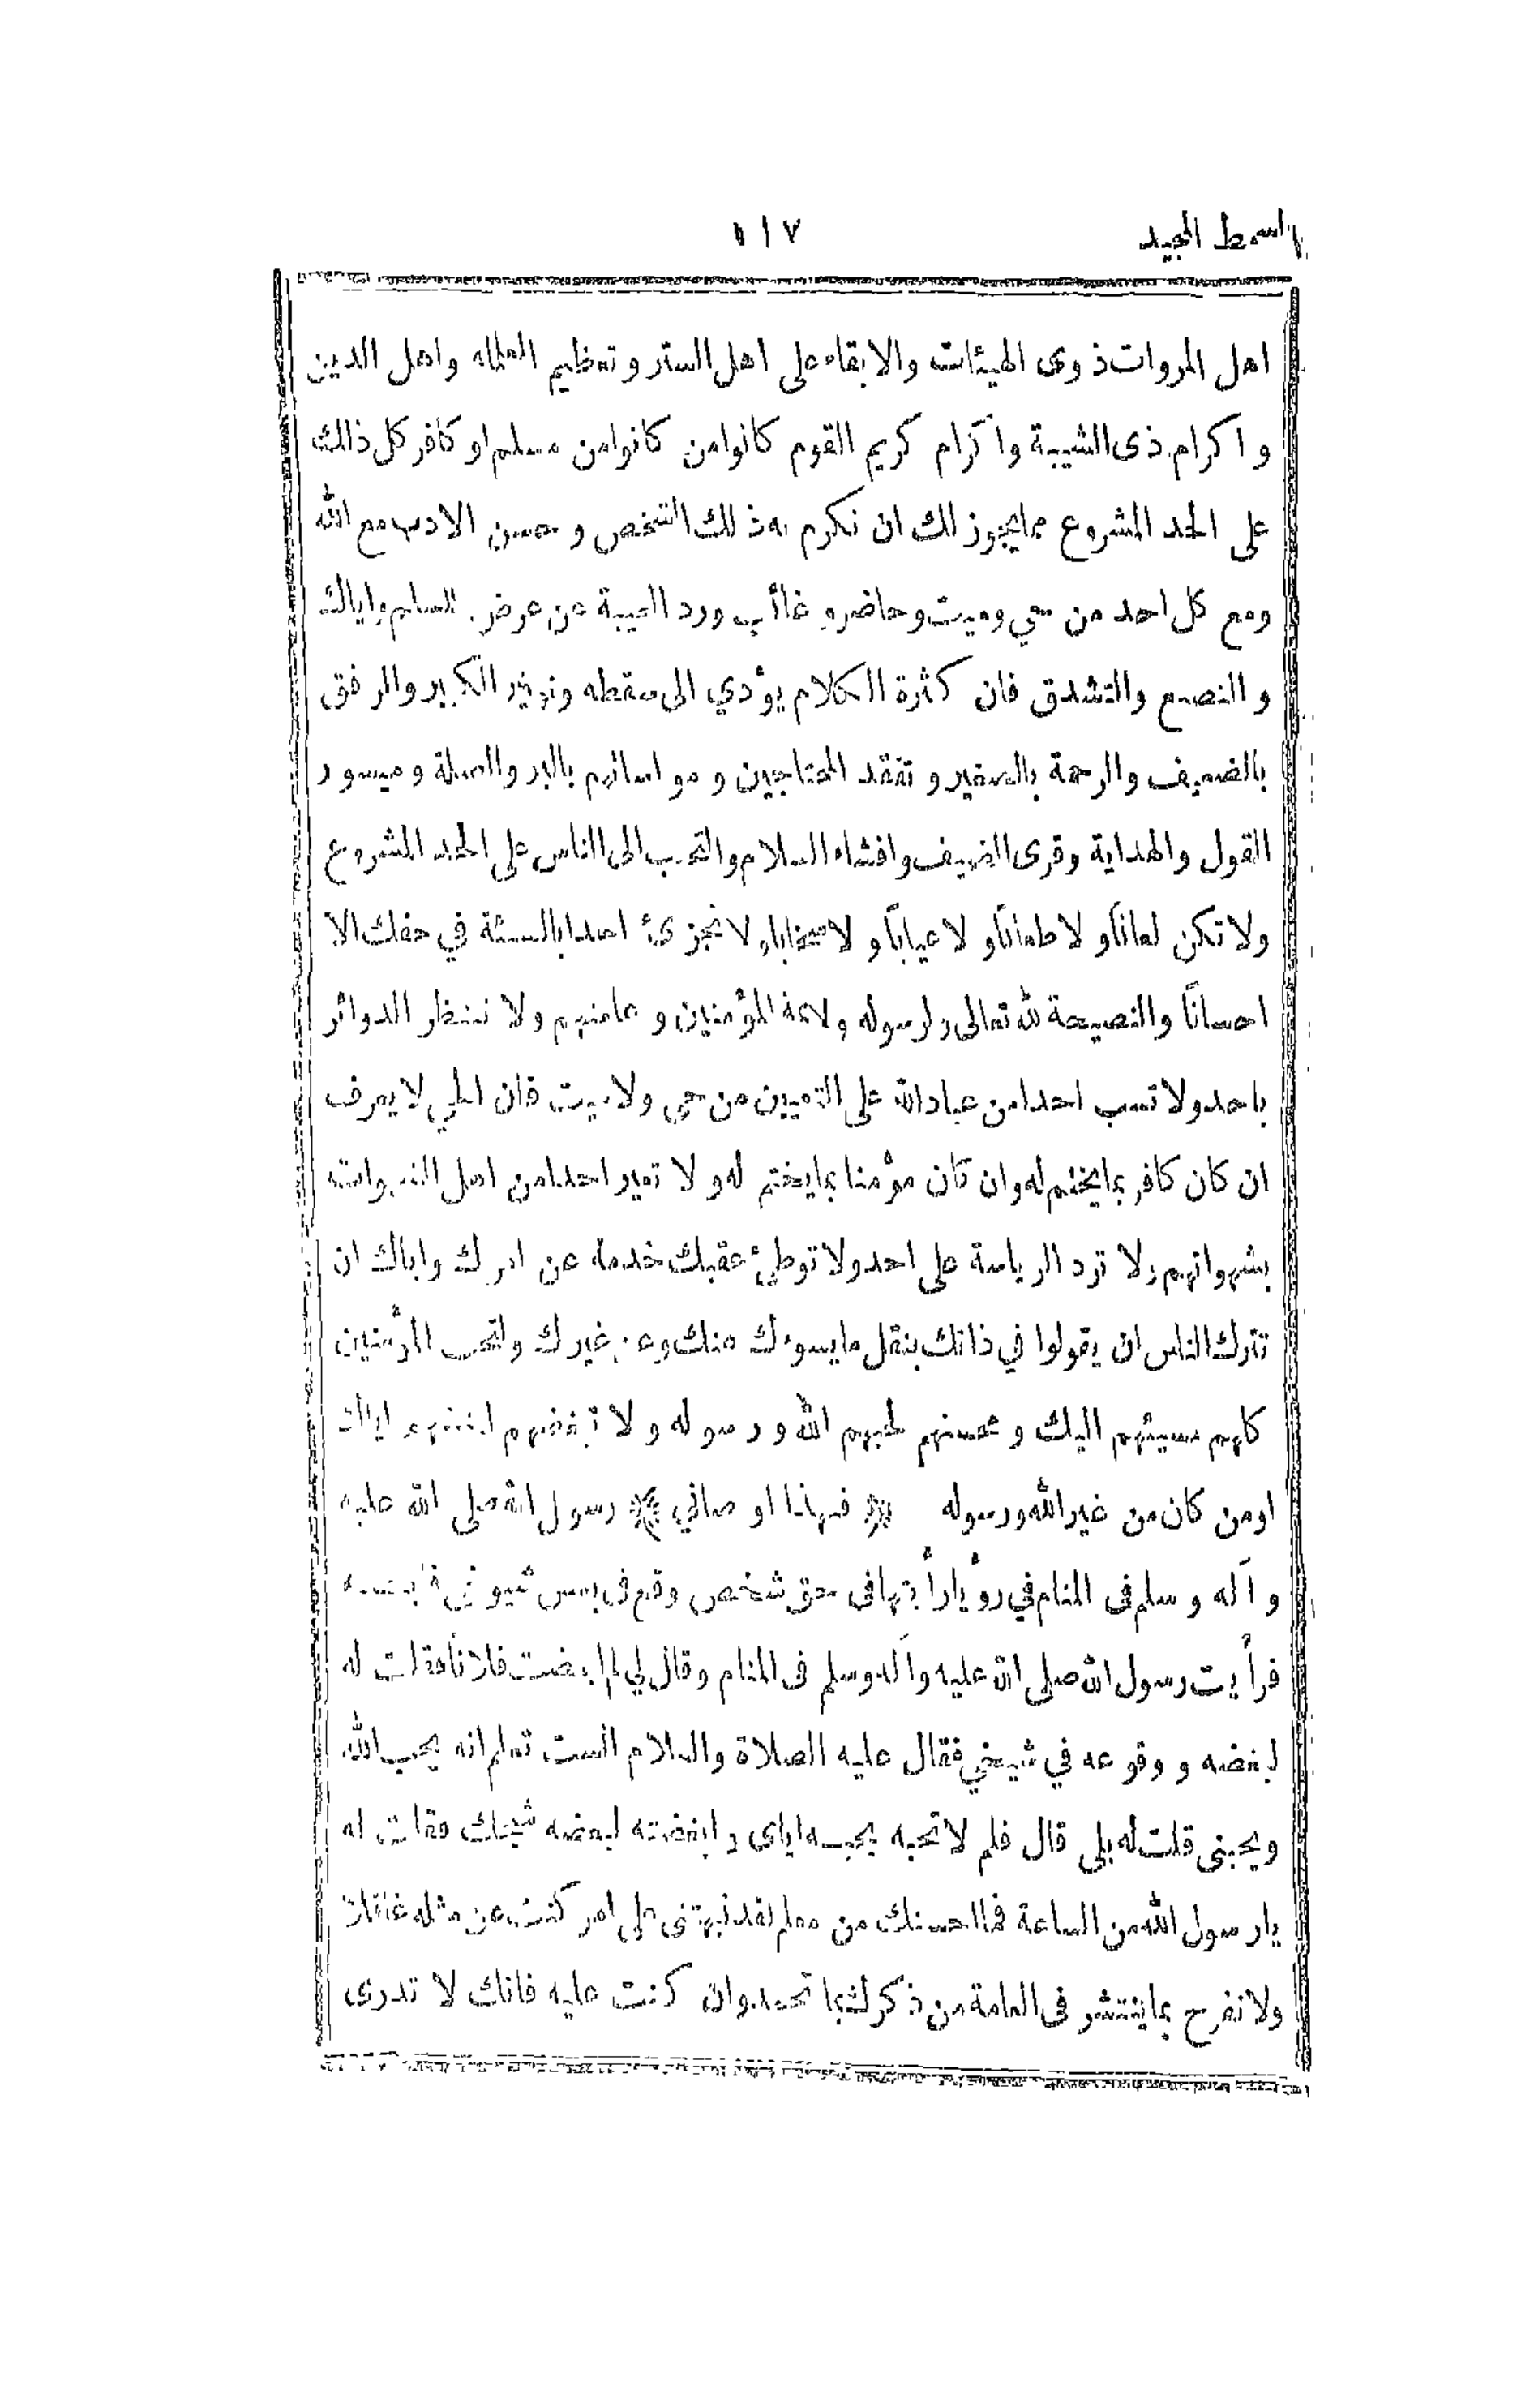 السمط المجيد ١١٧
اهل المروات ذوى الهيئات والابقاء على اهل الستر وتعظيم العلماء واهل الدين
و اكرام ذى الشيبة واكرام كريم القوم كانوا من كانوا من مسلم او كافر كل ذلك
على الحد المشروع مما يجوز لك ان تكرم به ذلك الشخص و حسن الادب مع الله
ومع كل احد من حي وميت وحاضر و غائب ورد الغيبة عن عرض المسلم واياك
و التصنع والتشدق فان كثرة الكلام يؤدي الى سقطه وتوقير الكبير والرفق
بالضعيف والرحمة بالصغير و تفقد المحتاجين و مواساتهم بالبر والصلة وميسور
القول والهداية وقرى الضيف وافشاء السلام والتحبب الى الناس على الحد المشروع
ولا تكن لعاناً و لا طعاناً و لا عياباً و لا سخابا ولا تجزىٔ احدا بالسيئة في حقك الا
احساناً والنصيحة لله تعالى ولرسوله ولائمة المؤمنين و عامتهم ولا تنتظر الدوائر
باحد ولا تسب احدا من عباد الله على التعيين من حي ولا ميت فان الحي لا يعرف
ان كان كافر بما يختم له وان كان مؤمنا بما يختم له و لا تعير احدا من اهل الشهوات
بشهواتهم ولا ترد الرياسة على احد ولا توطىٔ عقبك خدمة عن امرك واياك ان
تترك الناس ان يقولوا في ذاتك بنقل ما يسوءك منك و غيرك ولتحب المؤمنين
كلهم مسيئهم اليك و محسنهم لحبهم الله و رسوله و لا تبغضهم لبغضهم اياك
او من كان من غير الله ورسوله فهذا اوصاني رسول الله صلى الله عليه
و آله و سلم فى المنام في رؤيا رأيتها فى حق شخص وقع فى بعض شيوخي
فرأيت رسول الله صلى الله عليه وآله وسلم فى المنام وقال لي لم ابغضت فلانا فقلت له
لبغضه و وقوعه في شيخي فقال عليه الصلاة والسلام الست تعلم انه يحب الله
ويحبنى قلت له بلى قال فلم لا تحبه بحبه اياى و ابغضته لبغضه شيخك فقلت له
يا رسول الله من الساعة فما احسنك من معلم لقد نبهتنى على امر كنت عن مثله غافلا
ولا تفرح بما ينتشر فى العامة من ذكرك بما تحمد وان كنت عليه فانك لا تدرى